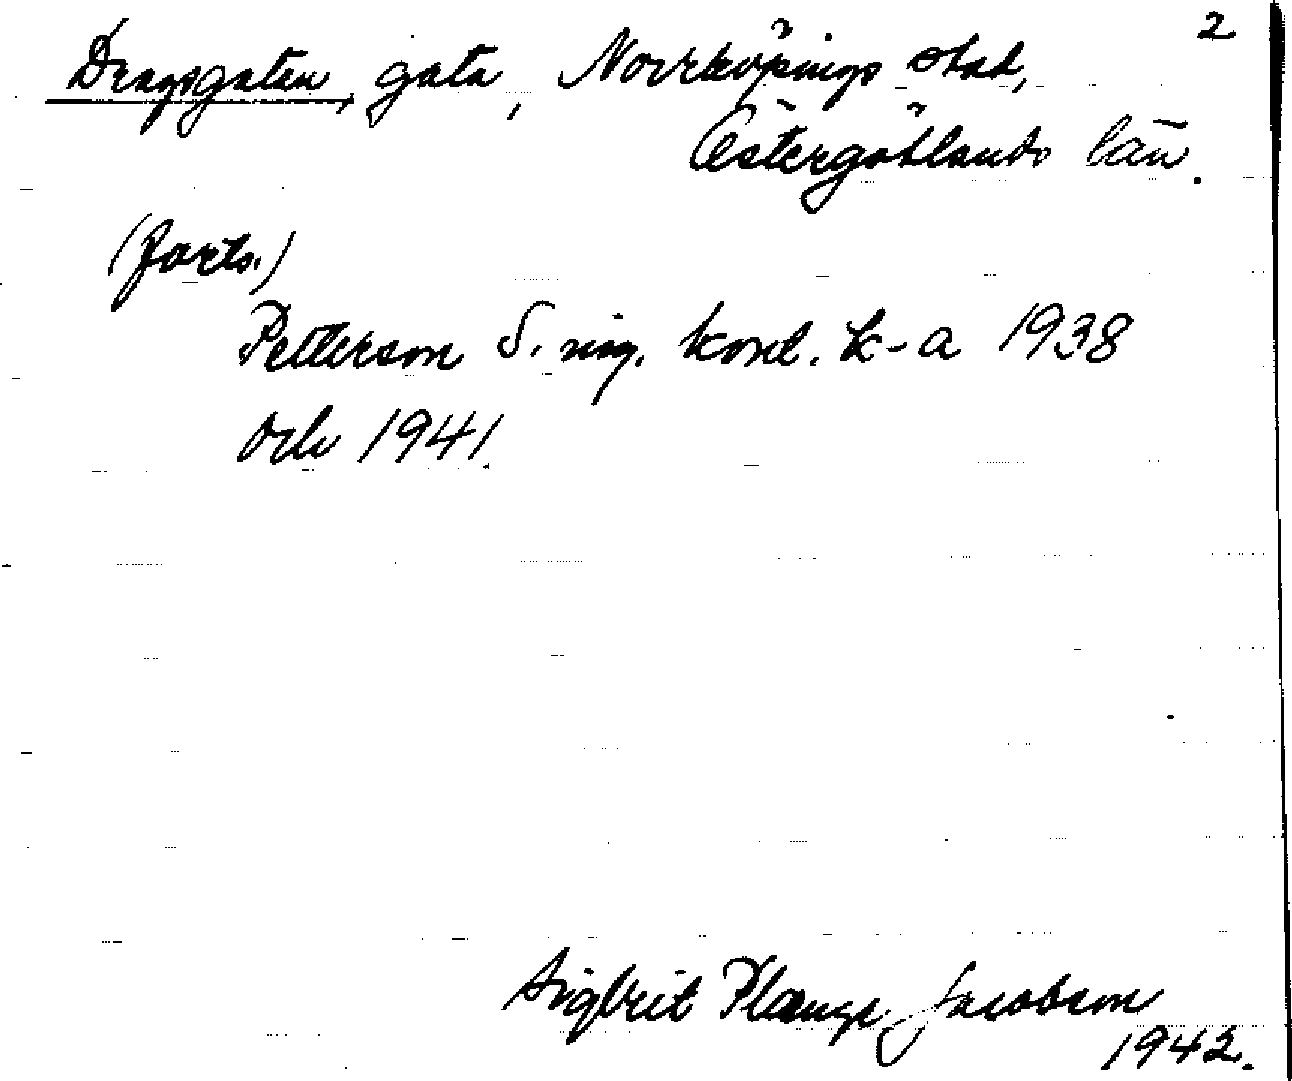 2
Dragsgatan, gata, Norrköpings stad,
Östergötlands län.
(forts.)
Petterson S. ing. kond. k-a 1938
och 1941.
Sigbrit Plænge Jacobson
1942.